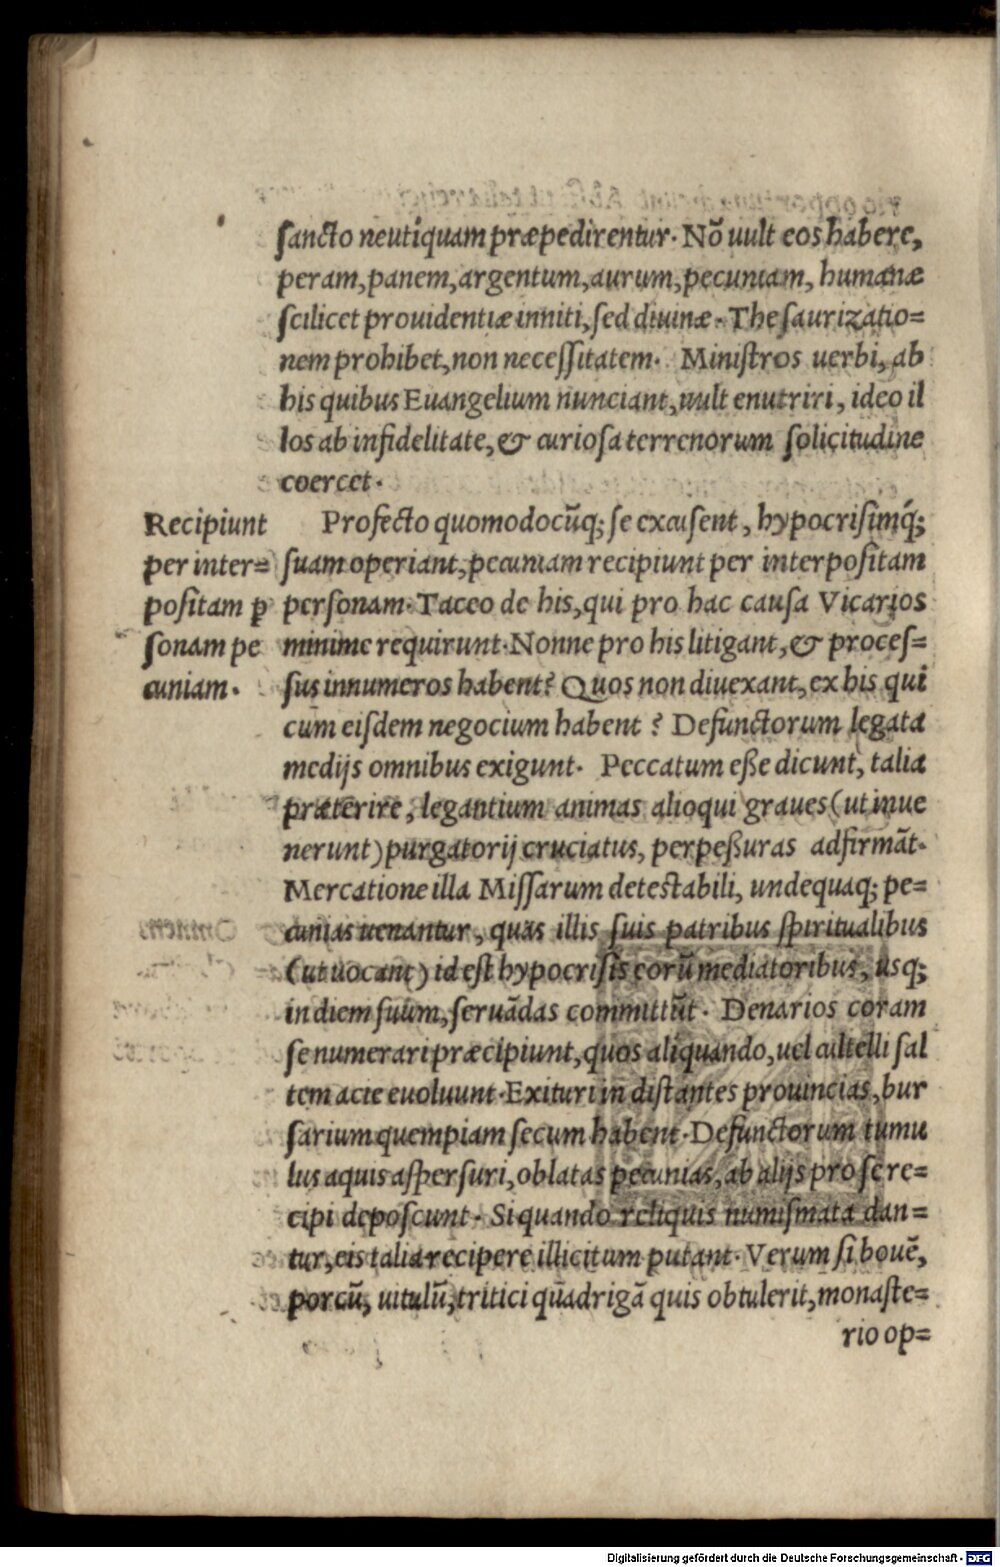 sancto neutiquam præpedirentur. Nō uult eos habere,
peram, panem, argentum, aurum, pecuniam, humanæ
scilicet prouidentiæ inniti, sed diuinæ. Thesaurizatio=
nem prohibet, non necessitatem. Ministros uerbi, ab
his quibus Euangelium nunciant, uult enutriri, ideo il
los ab infidelitate, & curiosa terrenorum solicitudine
coercet.
Recipiunt
per inter=
positam ꝑ
sonam pe
cuniam.
Profecto quomodocūq; se excusent, hypocrisimq́;
suam operiant, pecuniam recipiunt per interpositam
personam. Taceo de his, qui pro hac causa Vicarios
minime requirunt. Nonne pro his litigant, & proces=
sus innumeros habent? Quos non diuexant, ex his qui
cum eisdem negocium habent? Defunctorum legata
medijs omnibus exigunt. Peccatum eße dicunt, talia
præterire, legantium animas alioqui graues (ut inue
nerunt) purgatorij cruciatus, perpeßuras adfirmāt.
Mercatione illa Missarum detestabili, undequaq; pe=
cunias uenantur, quas illis suis patribus spiritualibus
(ut uocant) id est hypocrisis eorū mediatoribus, usq;
in diem suum, seruādas committūt. Denarios coram
se numerari præcipiunt, quos aliquando, uel cultelli sal
tem acie euoluunt. Exituri in distantes prouincias, bur
sarium quempiam secum habent. Defunctorum tumu
lus aquis aspersuri, oblatas pecunias, ab alijs pro se re=
cipi deposcunt. Si quando reliquis numismata dan=
tur, eis talia recipere illicitum putant. Verum si bouē,
porcū, uitulū, tritici quadrigā quis obtulerit, monaste=
rio op=
Digitalisierung gefördert durch die Deutsche Forschungsgemeinschaft - DFG